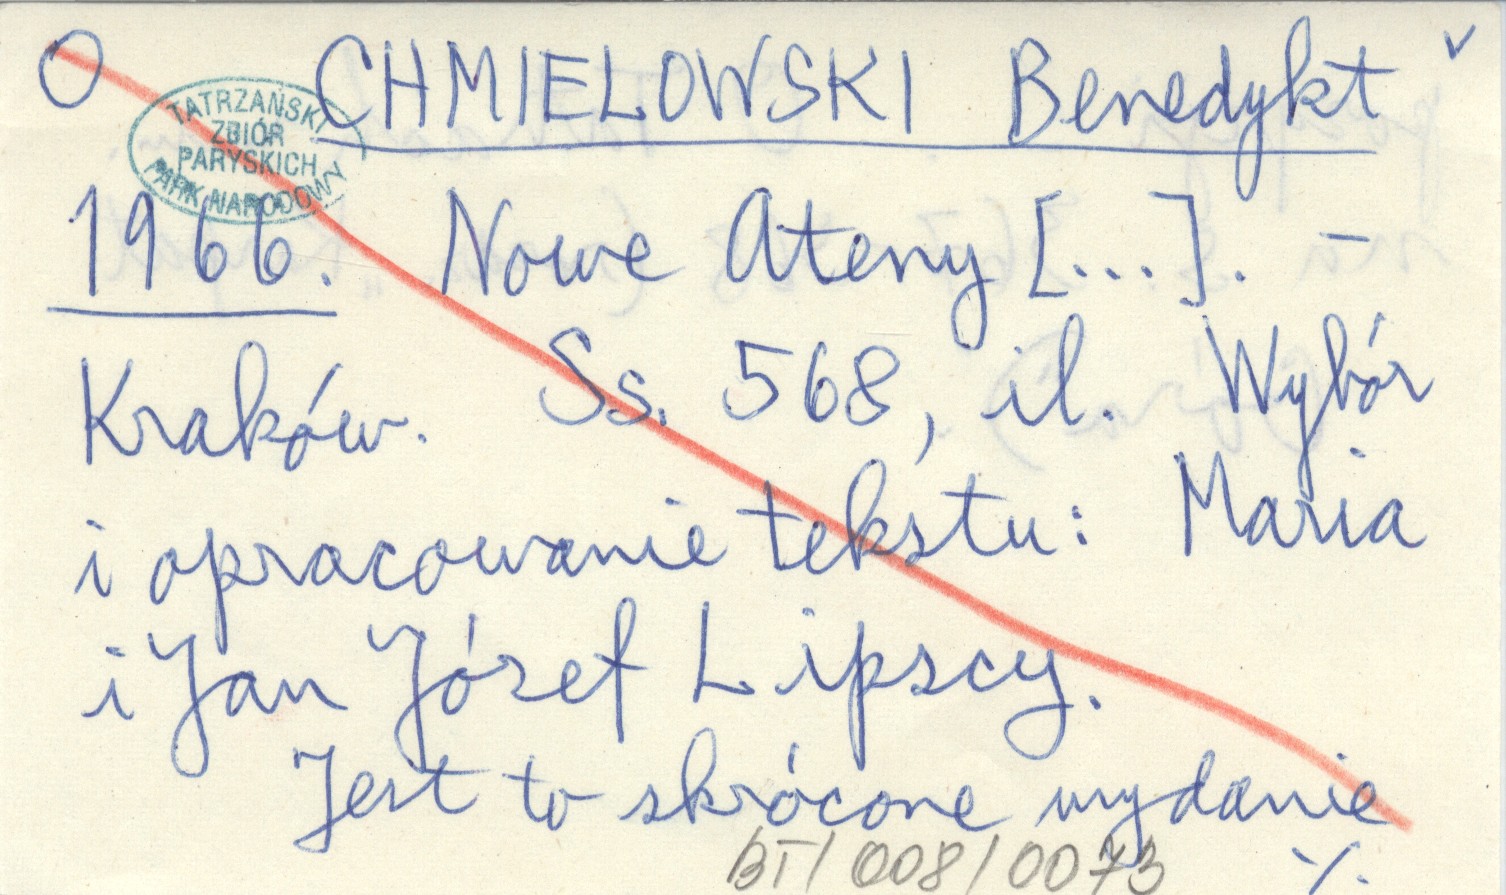 O CHMIELOWSKI Benedykt v
TATRZAŃSKI
ZBIÓR
PARYSKICH
PARK NARODOWY
1966. Nowe Ateny [...]. –
Kraków. Ss. 568, il. Wybór
i opracowanie tekstu: Maria
i Jan Józef Lipscy.
Jest to skrócone wydanie
BT/008/0073 ./.